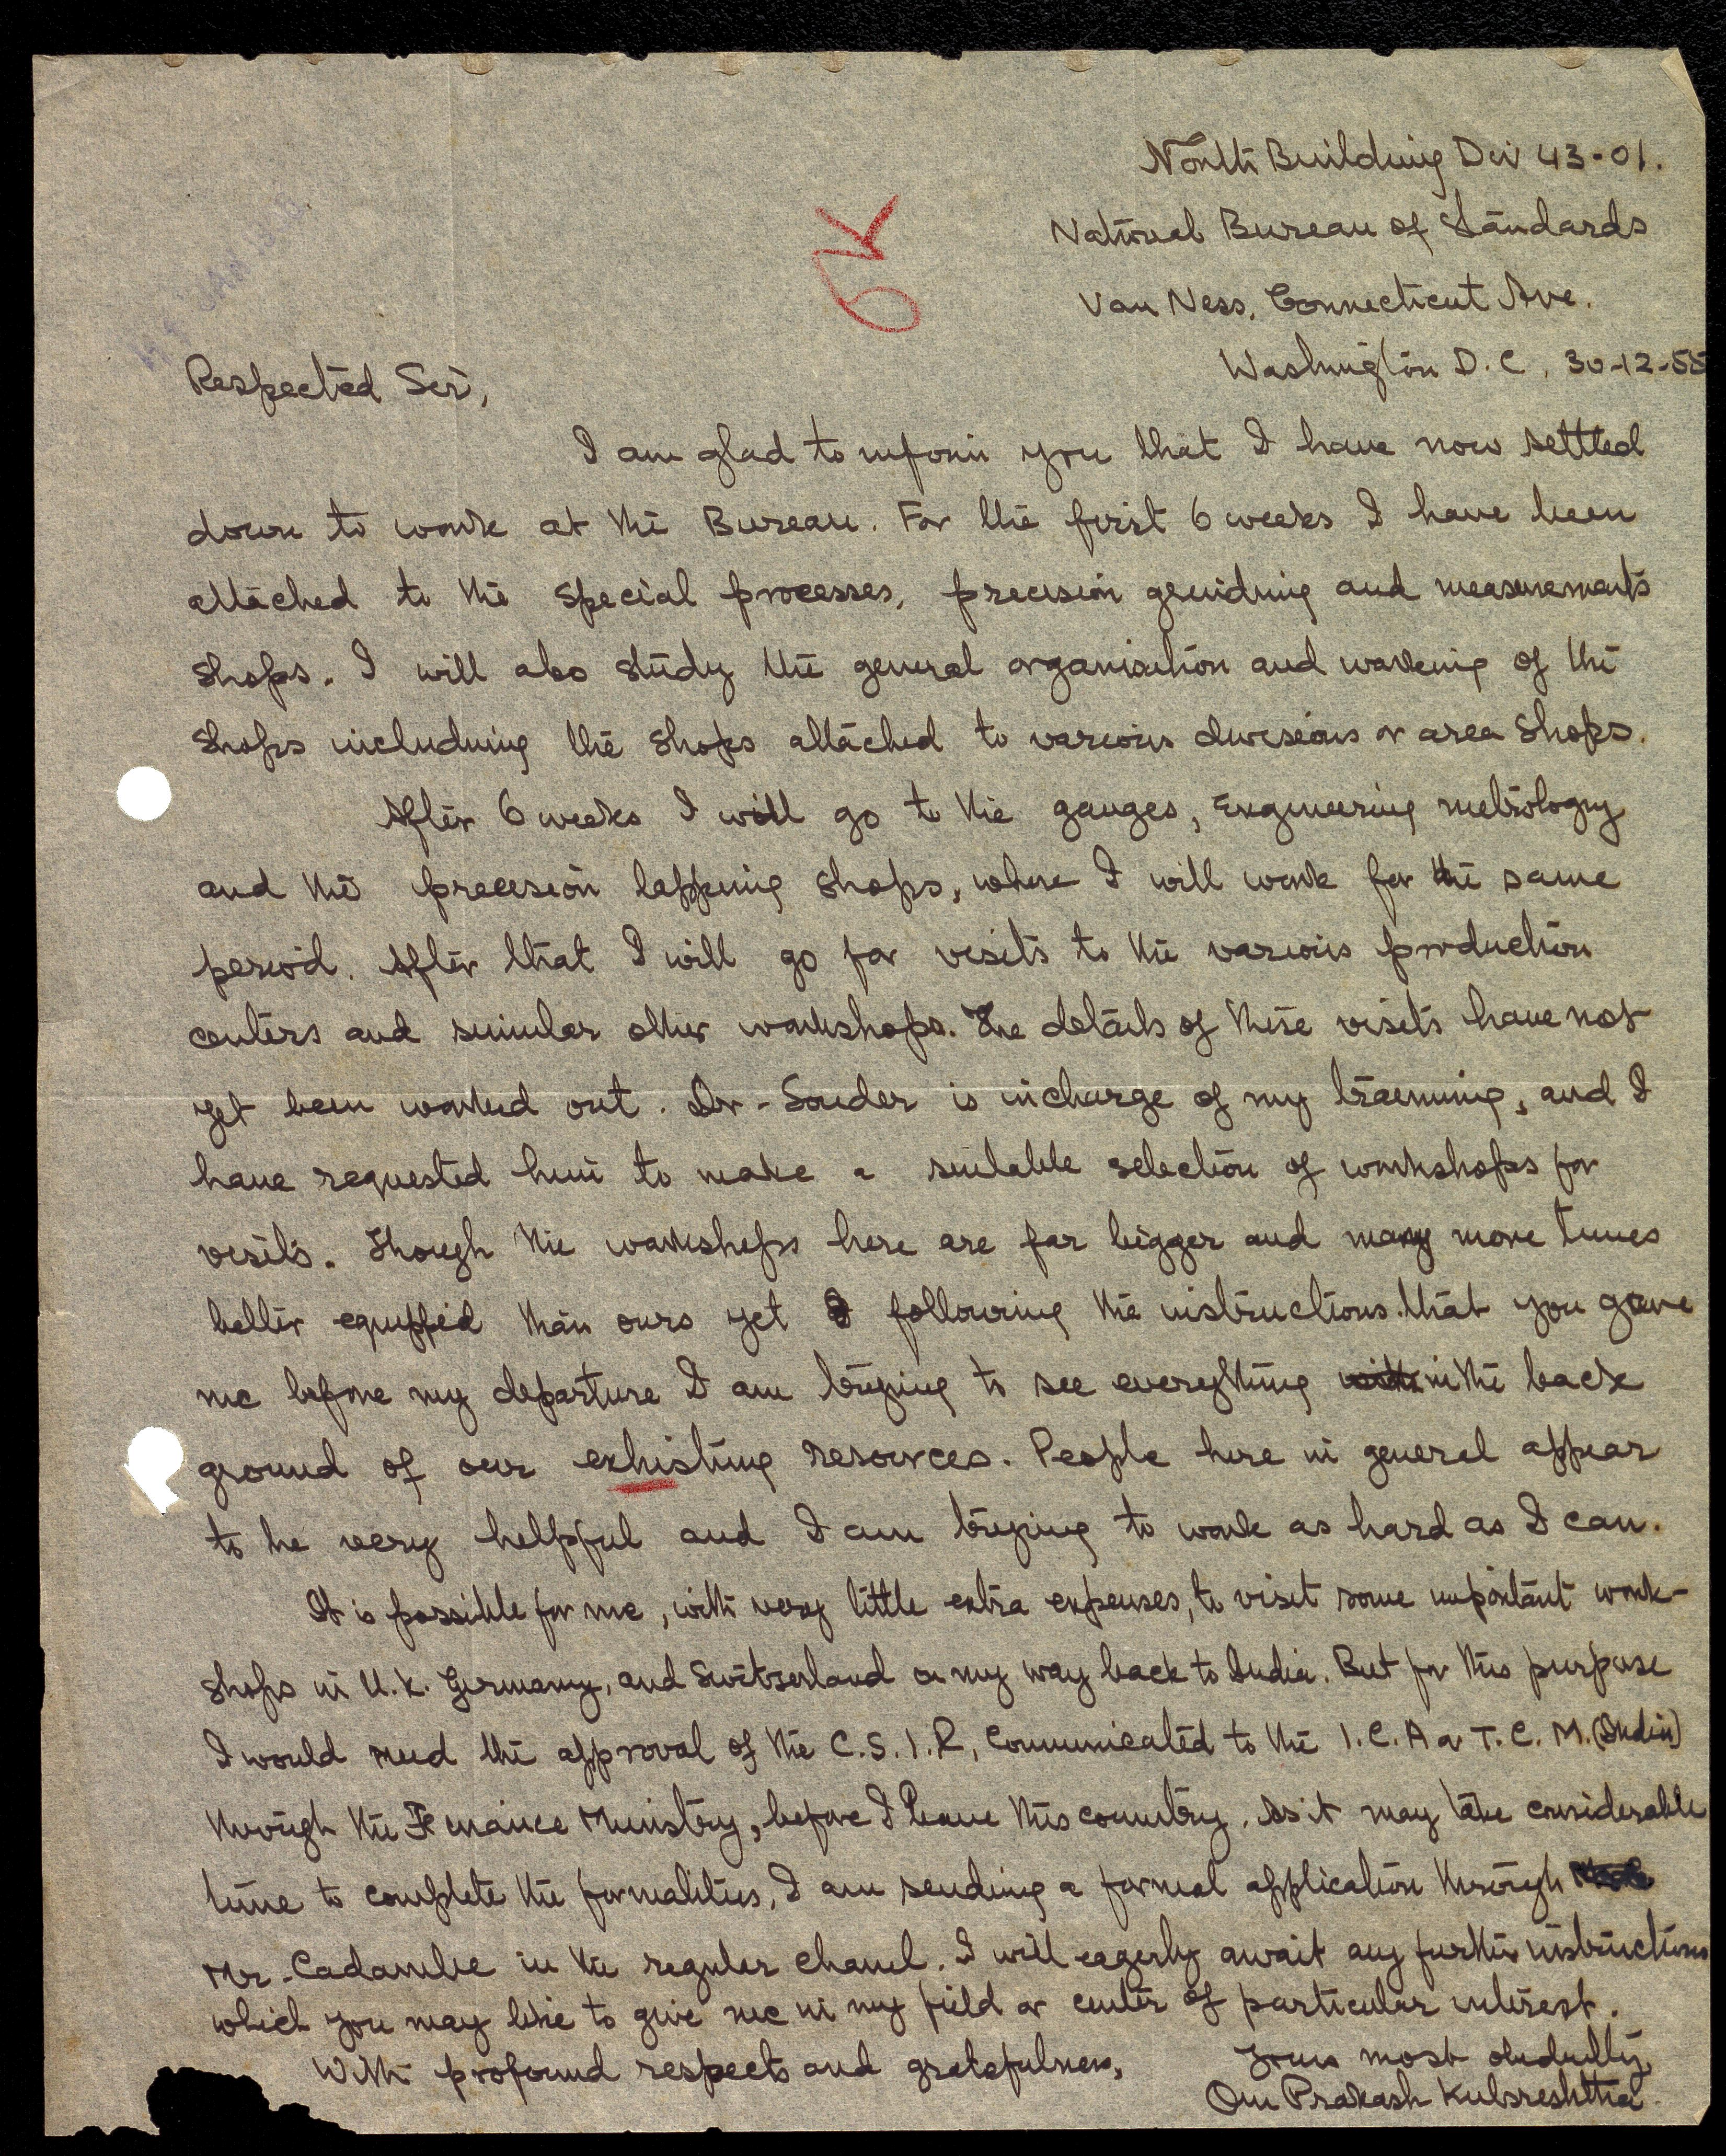 North Building Div 43-01.
National Bureau of Standards
Van Ness, Connecticut Ave.
Washington D.C. 30-12-55
Respected Sir,
I am glad to inform you that I have now settled
down to work at the Bureau. For the first 6 weeks I have been
attached to the special processes, precision grinding and measurements
shops. I will also study the general organisation and working of the
shops including the shops attached to various divisions or area shops.
After 6 weeks I will go to the gauges, Engineering metrology
and the precision lapping shops, where I will work for the same
period. After that I will go for visits to the various production
centers and similar other workshops. The details of these visits have not
yet been worked out. Dr. Souder is incharge of my trainning, and I
have requested him to make a suitable selection of workshops for
visits. Though the workshops here are far bigger and many more times
better equipped than ours yet following the instructions that you gave
me before my departure I am trying to see everything in the back
ground of our exhisting resources. People here in general appear
to be very helpful and I am trying to work as hard as I can.
It is possible for me, with very little extra expenses, to visit some important work-
shops in U.K. Germany, and Switzerland on my way back to India. But for this purpose
I would need the approval of the C.S.I.R, Communicated to the I.C.A or T.C.M.(India)
through the Finance Ministry, before I leave this country. As it may take considerable
time to complete the formalities, I am sending a formal application through
Mr. Cadambe in the regular chanel. I will eagerly await any further instructions
which you may like to give me in my field or center of particular interest.
With profound respects and gratefulness,
Yours most obediently,
Om Prakash Kulshreshtha